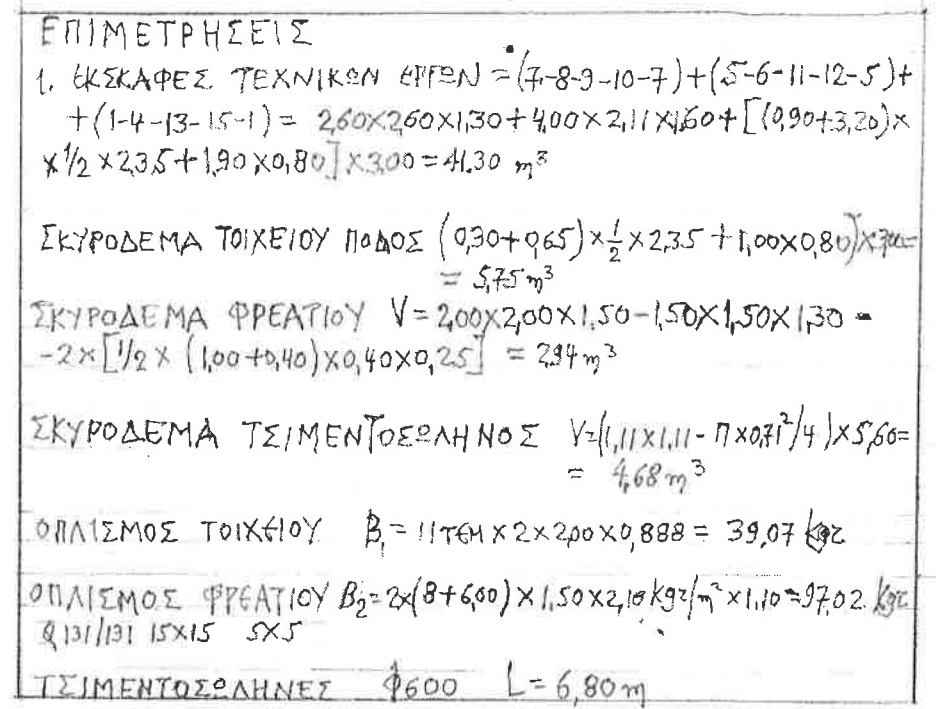 ΕΠΙΜΕΤΡΗΣΕΙΣ
1. ΕΚΣΚΑΦΕΣ ΤΕΧΝΙΚΩΝ ΕΡΓΩΝ = (7-8-9-10-7)+(5-6-11-12-5)+
+(1-4-13-15-1) = 2,60×2,60×1,30+4,00×2,11×1,60+[(0,90+3,20)×
×1/2×2,35+1,90×0,80]×3,00=41.30 m³
ΣΚΥΡΟΔΕΜΑ ΤΟΙΧΕΙΟΥ ΠΟΔΟΣ (0,30+0,65)×1/2×2,35+1,00×0,80]×3,00=
= 5,75 m³
ΣΚΥΡΟΔΕΜΑ ΦΡΕΑΤΙΟΥ V=2,00×2,00×1,50-1,50×1,50×1,30-
-2×[1/2×(1,00+0,40)×0,40×0,25] = 2,94 m³
ΣΚΥΡΟΔΕΜΑ ΤΣΙΜΕΝΤΟΣΩΛΗΝΟΣ V=(1,11×1,11-Π×0,71²/4)×5,60=
= 4,68 m³
ΟΠΛΙΣΜΟΣ ΤΟΙΧΕΙΟΥ B₁=11ΤΕΜ×2×2,00×0,888= 39,07 kgr
ΟΠΛΙΣΜΟΣ ΦΡΕΑΤΙΟΥ B₂=2×(8+6,00)×1,50×2,10 kgr/m²×1,10=97,02 kgr
Q131/131 15×15 5×5
ΤΣΙΜΕΝΤΟΣΩΛΗΝΕΣ Φ600 L=6,80m